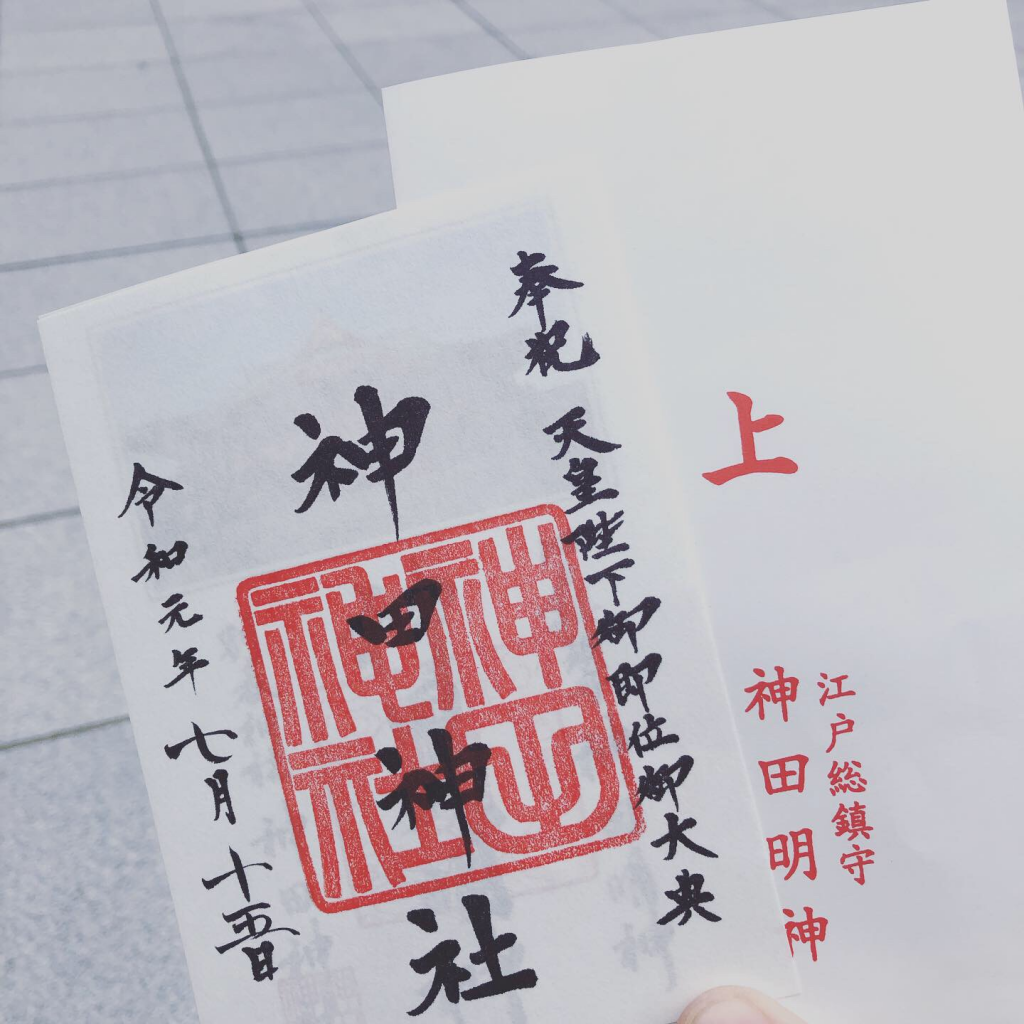 奉祝 天皇陛下御即位御大典
神田神社
令和元年七月十五日
神田
神社
上
江戸総鎮守
神田明神